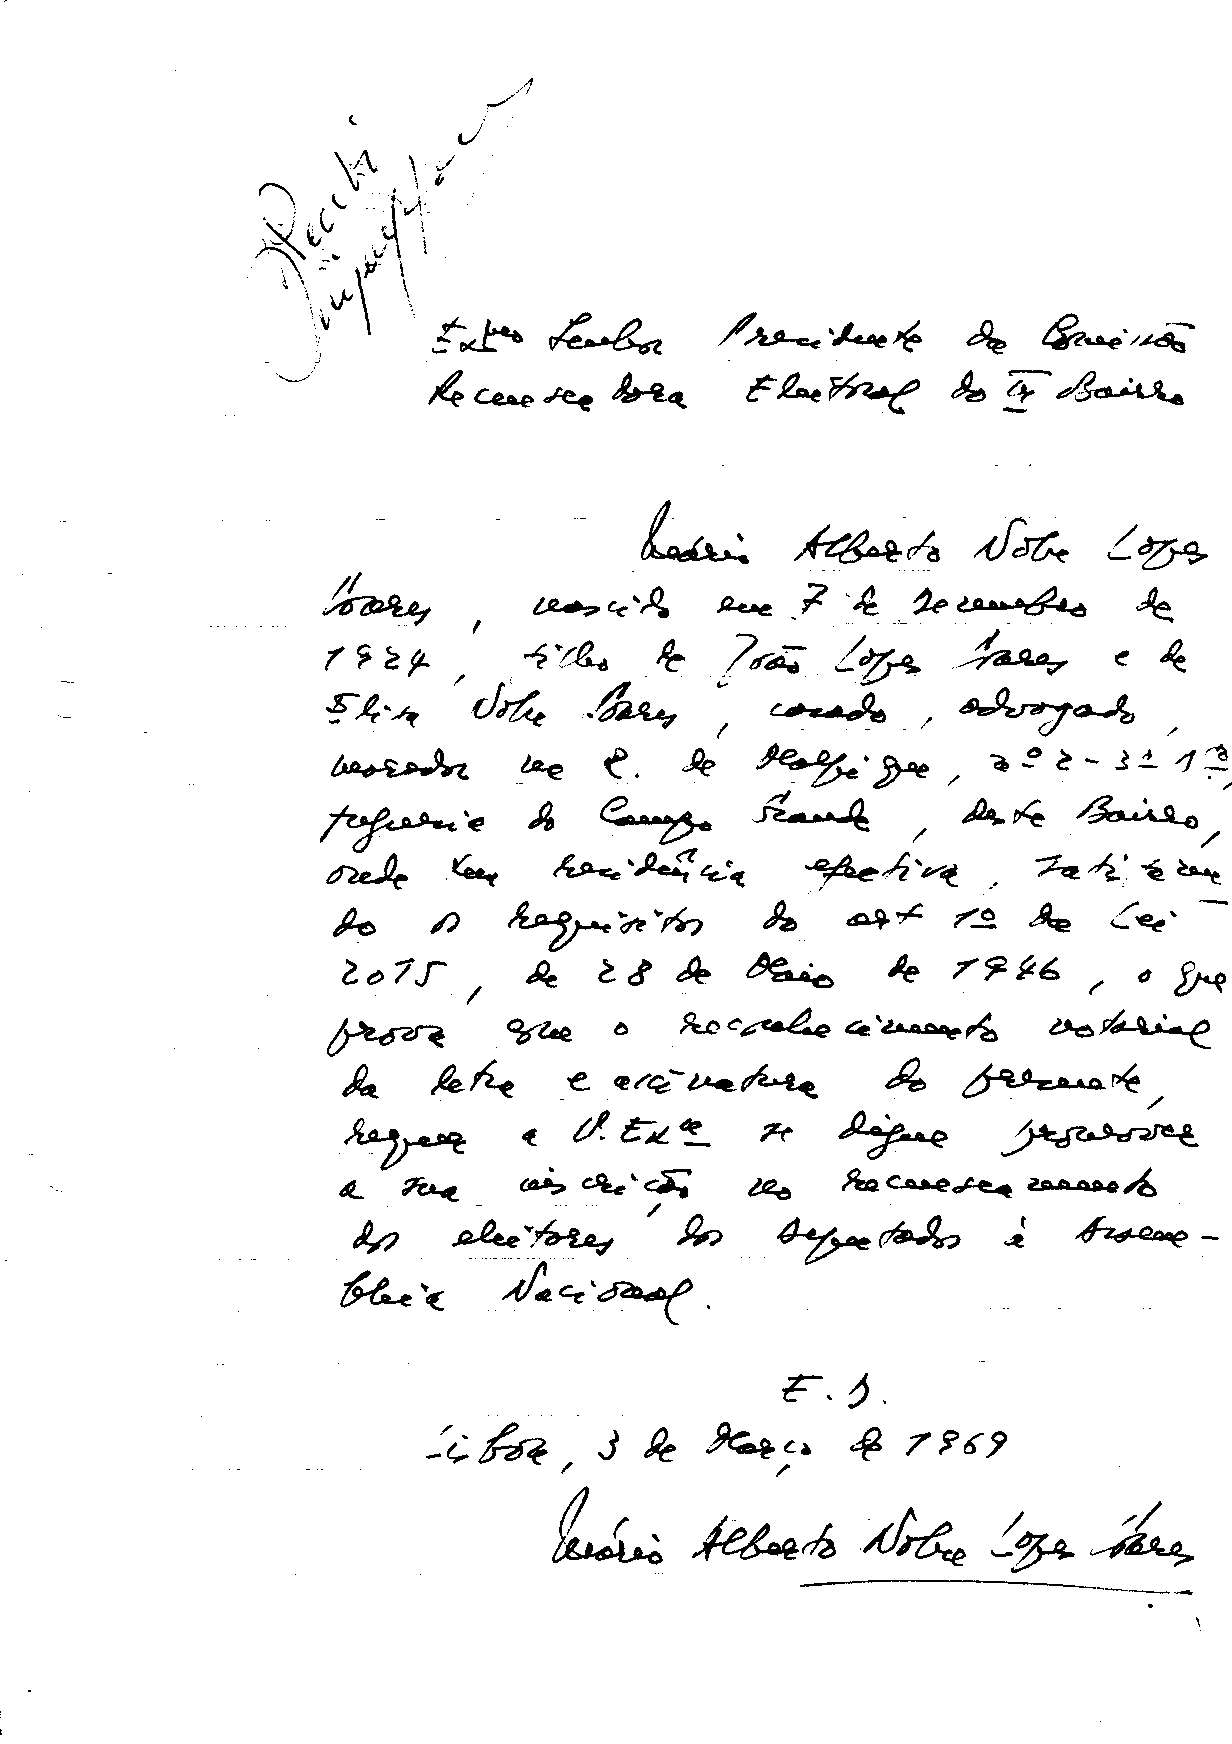 Recebi
Exmo Senhor Presidente da Comissão
Recenseadora Eleitoral do Bairro
Mário Alberto Nobre Lopes
Soares, nascido em 7 de Dezembro de
1924, filho de João Lopes Soares e de
Elisa Nobre Soares, casado, advogado,
morador na R. de Malpique, nº 2 - 3º 1º,
freguesia do Campo Grande, deste Bairro,
onde tem residência efectiva, satisfazen
do os requisitos do art 1º da Lei
2015, de 28 de Maio de 1946, o que
prova que o reconhecimento notarial
da letra e assinatura do presente,
requer a V. Exª se digne promover
a sua inscrição no recenseamento
dos eleitores dos deputados à Assem-
bleia Nacional.
E. D.
Lisboa, 3 de Março de 1969
Mário Alberto Nobre Lopes Soares